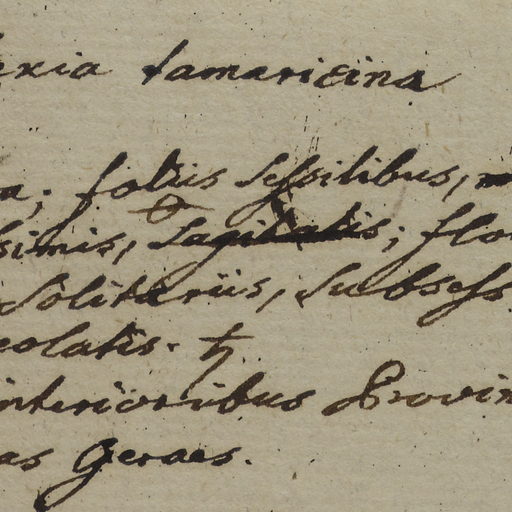 exia tamaricina
a; foliis sessilibus,
simis, sagittatis; flo
solitariis, subsess
eolatis. ♄
interioribus Provin
as Geraes.